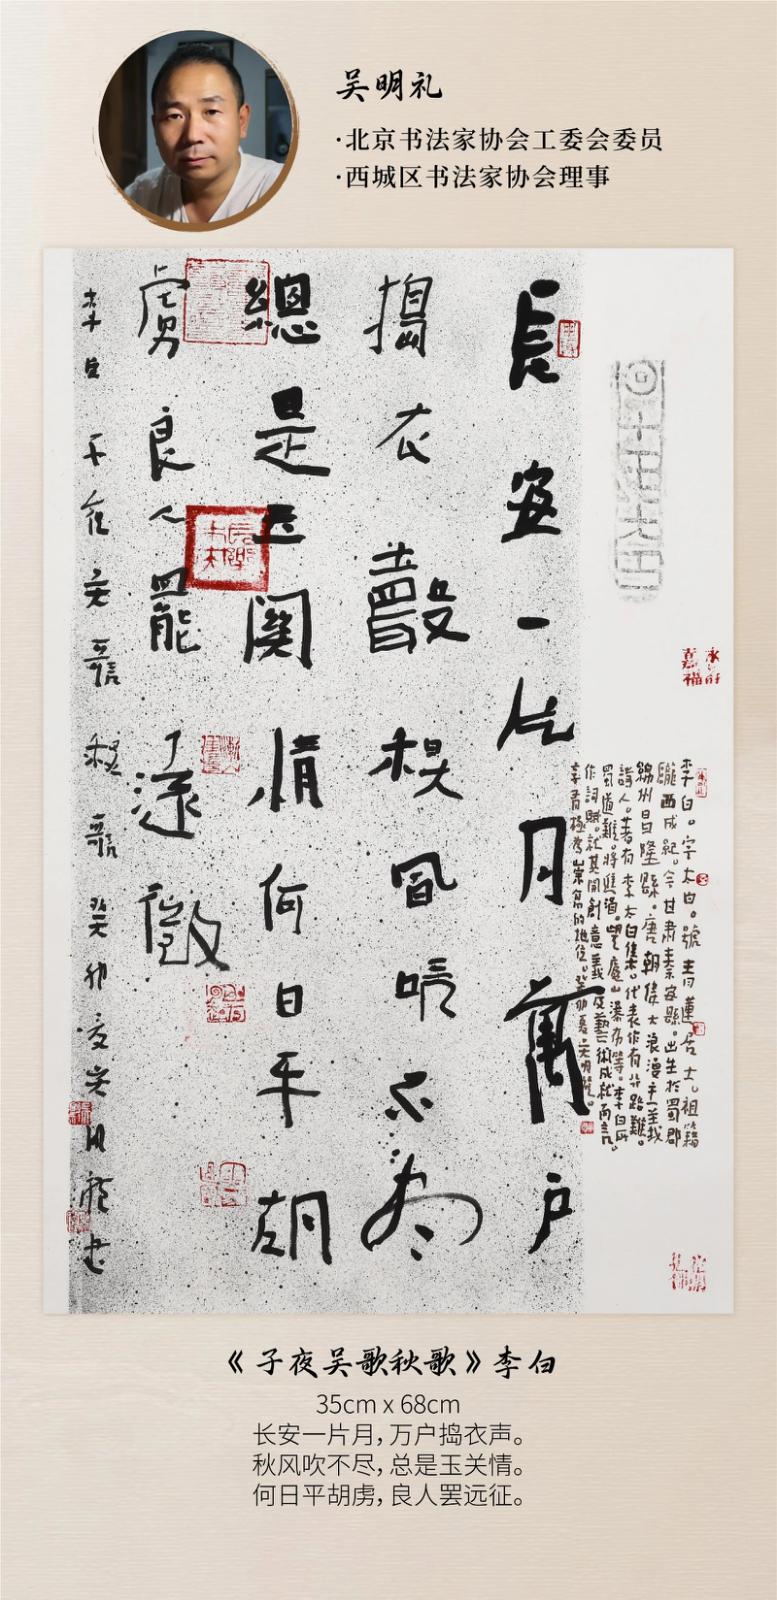 吴明礼
·北京书法家协会工委会委员
·西城区书法家协会理事
長安一片月萬户
搗衣聲秋風吹不盡
總是玉關情何日平胡
虜良人罷遠徵
李白子夜吴歌秋歌癸卯夏吴明礼书
李白。字太白。號青蓮居士。祖籍
隴西成紀。今甘肅秦安縣。出生於蜀郡
綿州昌隆縣。唐朝偉大浪漫主義
詩人。著有李太白集。代表作有行路難。
蜀道難。將進酒。望廬山瀑布等。李白所
作詞賦。就其開創意義及藝術成就而言。
享有極為崇高的地位。癸卯夏吴明礼。
《子夜吴歌秋歌》李白
35cm x 68cm
长安一片月，万户捣衣声。
秋风吹不尽，总是玉关情。
何日平胡虏，良人罢远征。